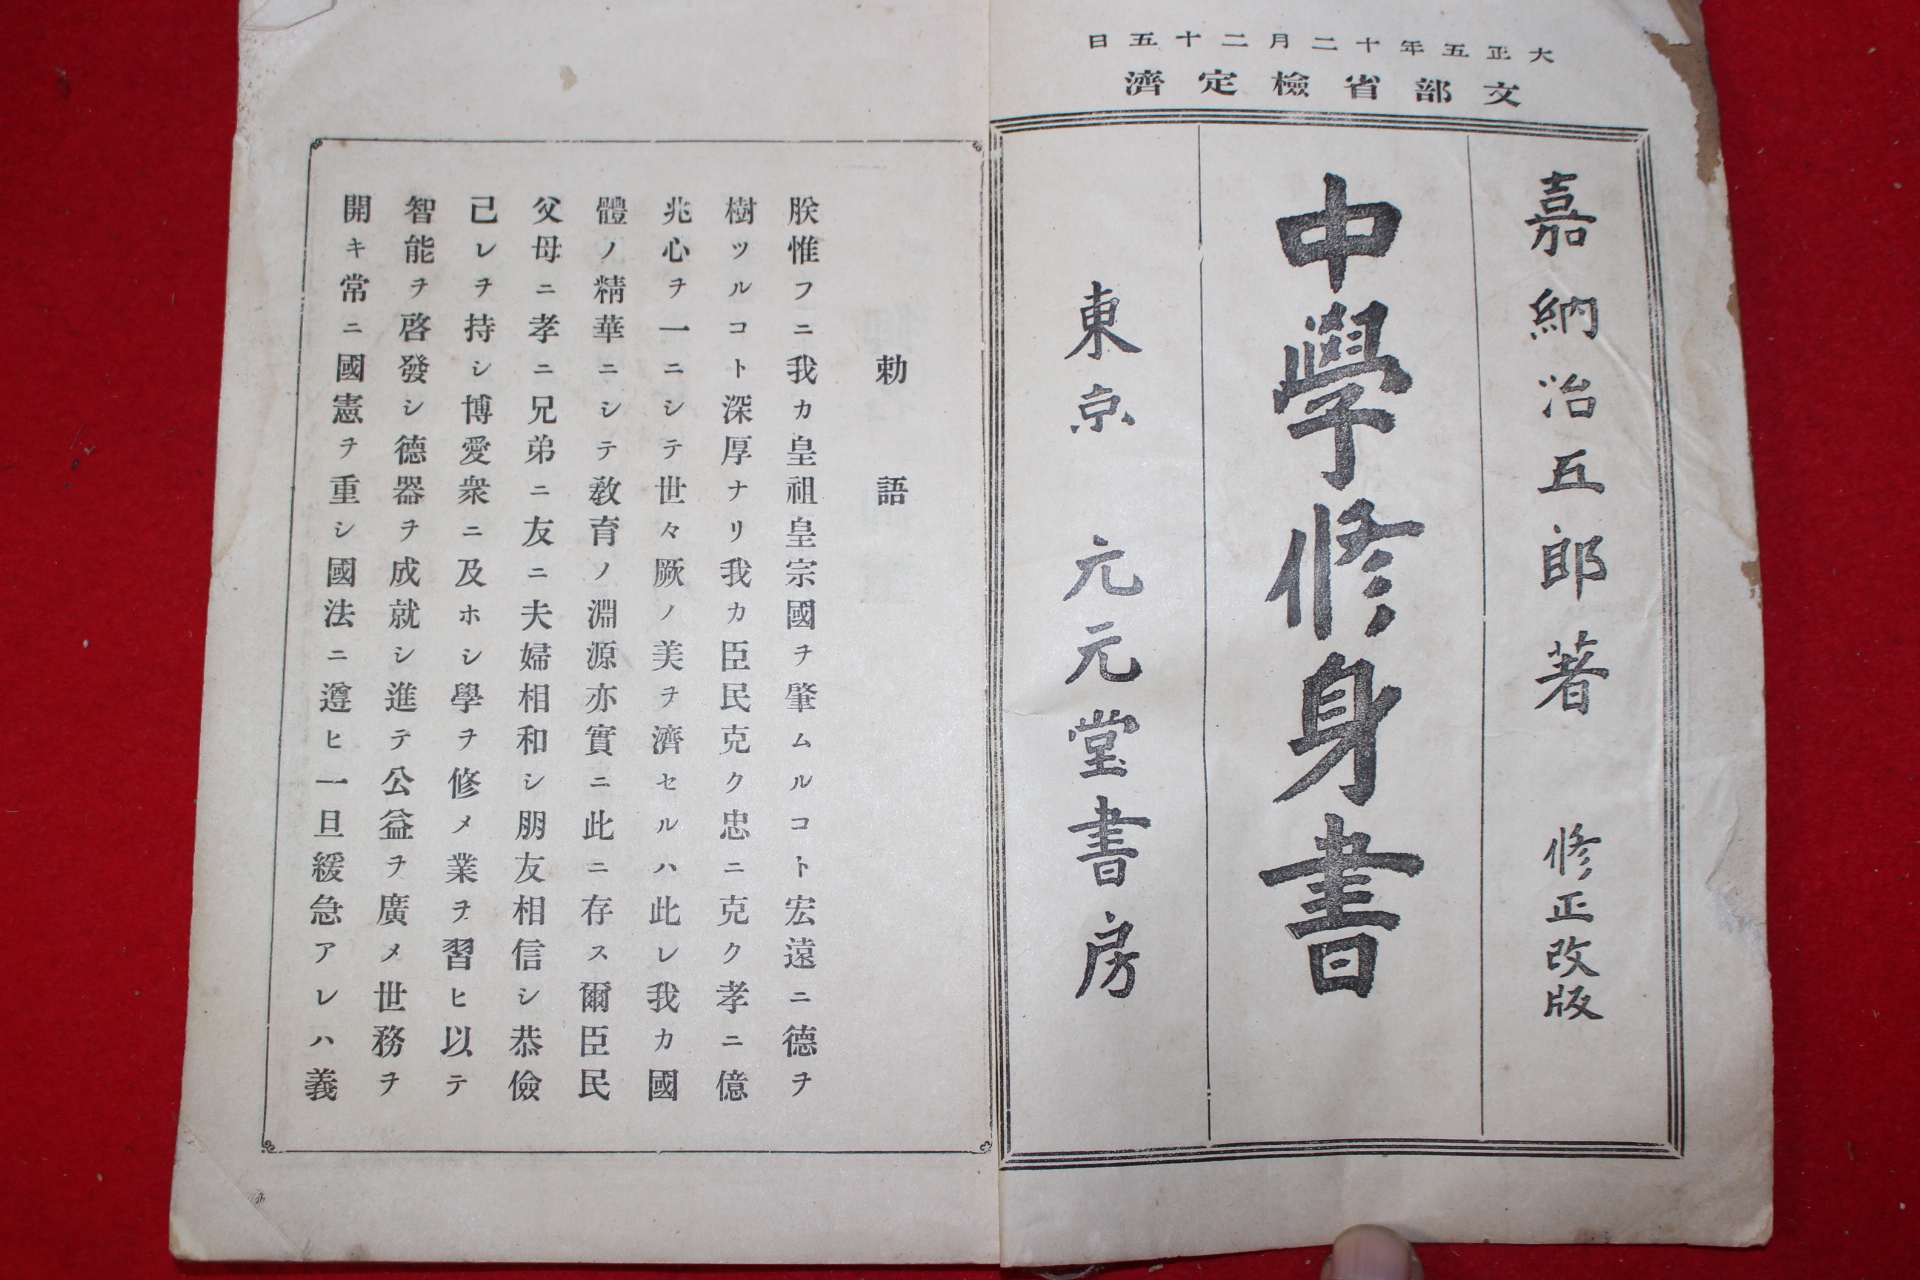 大正五年十二月二十五日
文部省檢定濟
嘉納治五郎著 修正改版
中學修身書
東京 元元堂書房
勅語
朕惟フニ我カ皇祖皇宗國ヲ肇ムルコト宏遠ニ德ヲ
樹ツルコト深厚ナリ我カ臣民克ク忠ニ克ク孝ニ億
兆心ヲ一ニシテ世々厥ノ美ヲ濟セルハ此レ我カ國
體ノ精華ニシテ敎育ノ淵源亦實ニ此ニ存ス爾臣民
父母ニ孝ニ兄弟ニ友ニ夫婦相和シ朋友相信シ恭儉
己レヲ持シ博愛衆ニ及ホシ學ヲ修メ業ヲ習ヒ以テ
智能ヲ啓發シ德器ヲ成就シ進テ公益ヲ廣メ世務ヲ
開キ常ニ國憲ヲ重シ國法ニ遵ヒ一旦緩急アレハ義